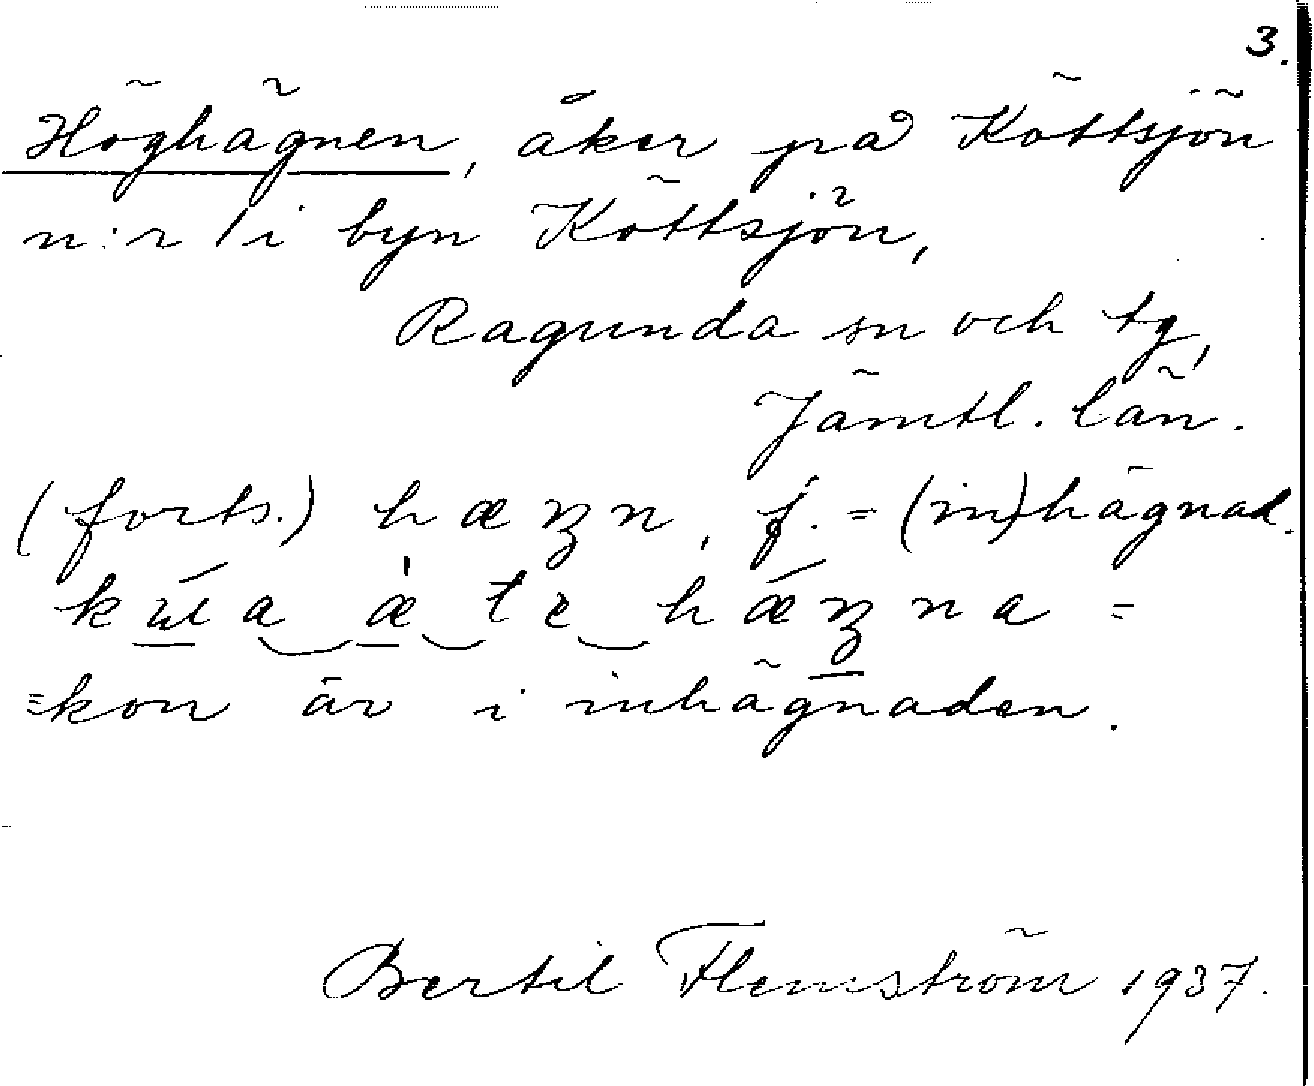 3.
Höghägnen, åker på Köttsjön
n:r 1 i byn Köttsjön,
Ragunda sn och tg,
Jämtl. län.
(forts.) hæʒn, f. = (in)hägnad.
hæʒna =
=kon är i inhägnaden.
Bertil Flemström 1937.